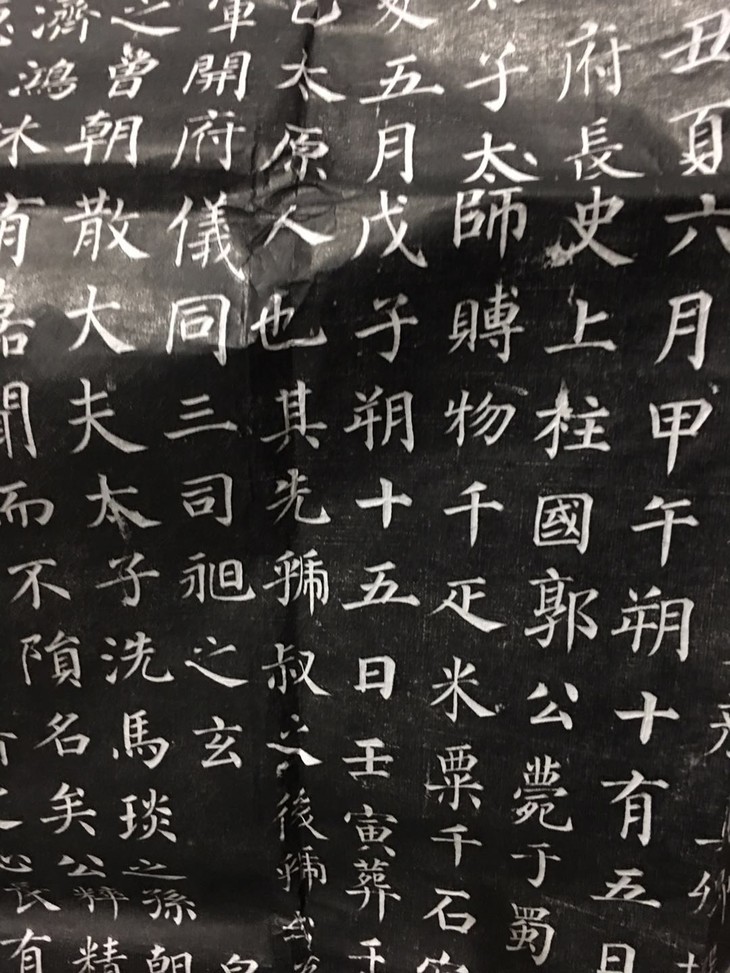 丑夏六月甲午朔十有五日
府長史上柱國郭公薨于蜀
子太師賻物千疋米粟千石
亥五月戊子朔十五日壬寅葬于
己太原人也其先虢叔之後虢或
軍開府儀同三司昶之玄 皇
之曾朝散大夫太子洗馬琰之孫朝
濟鴻休有嘉聞而不隕名矣公粹精
心長有